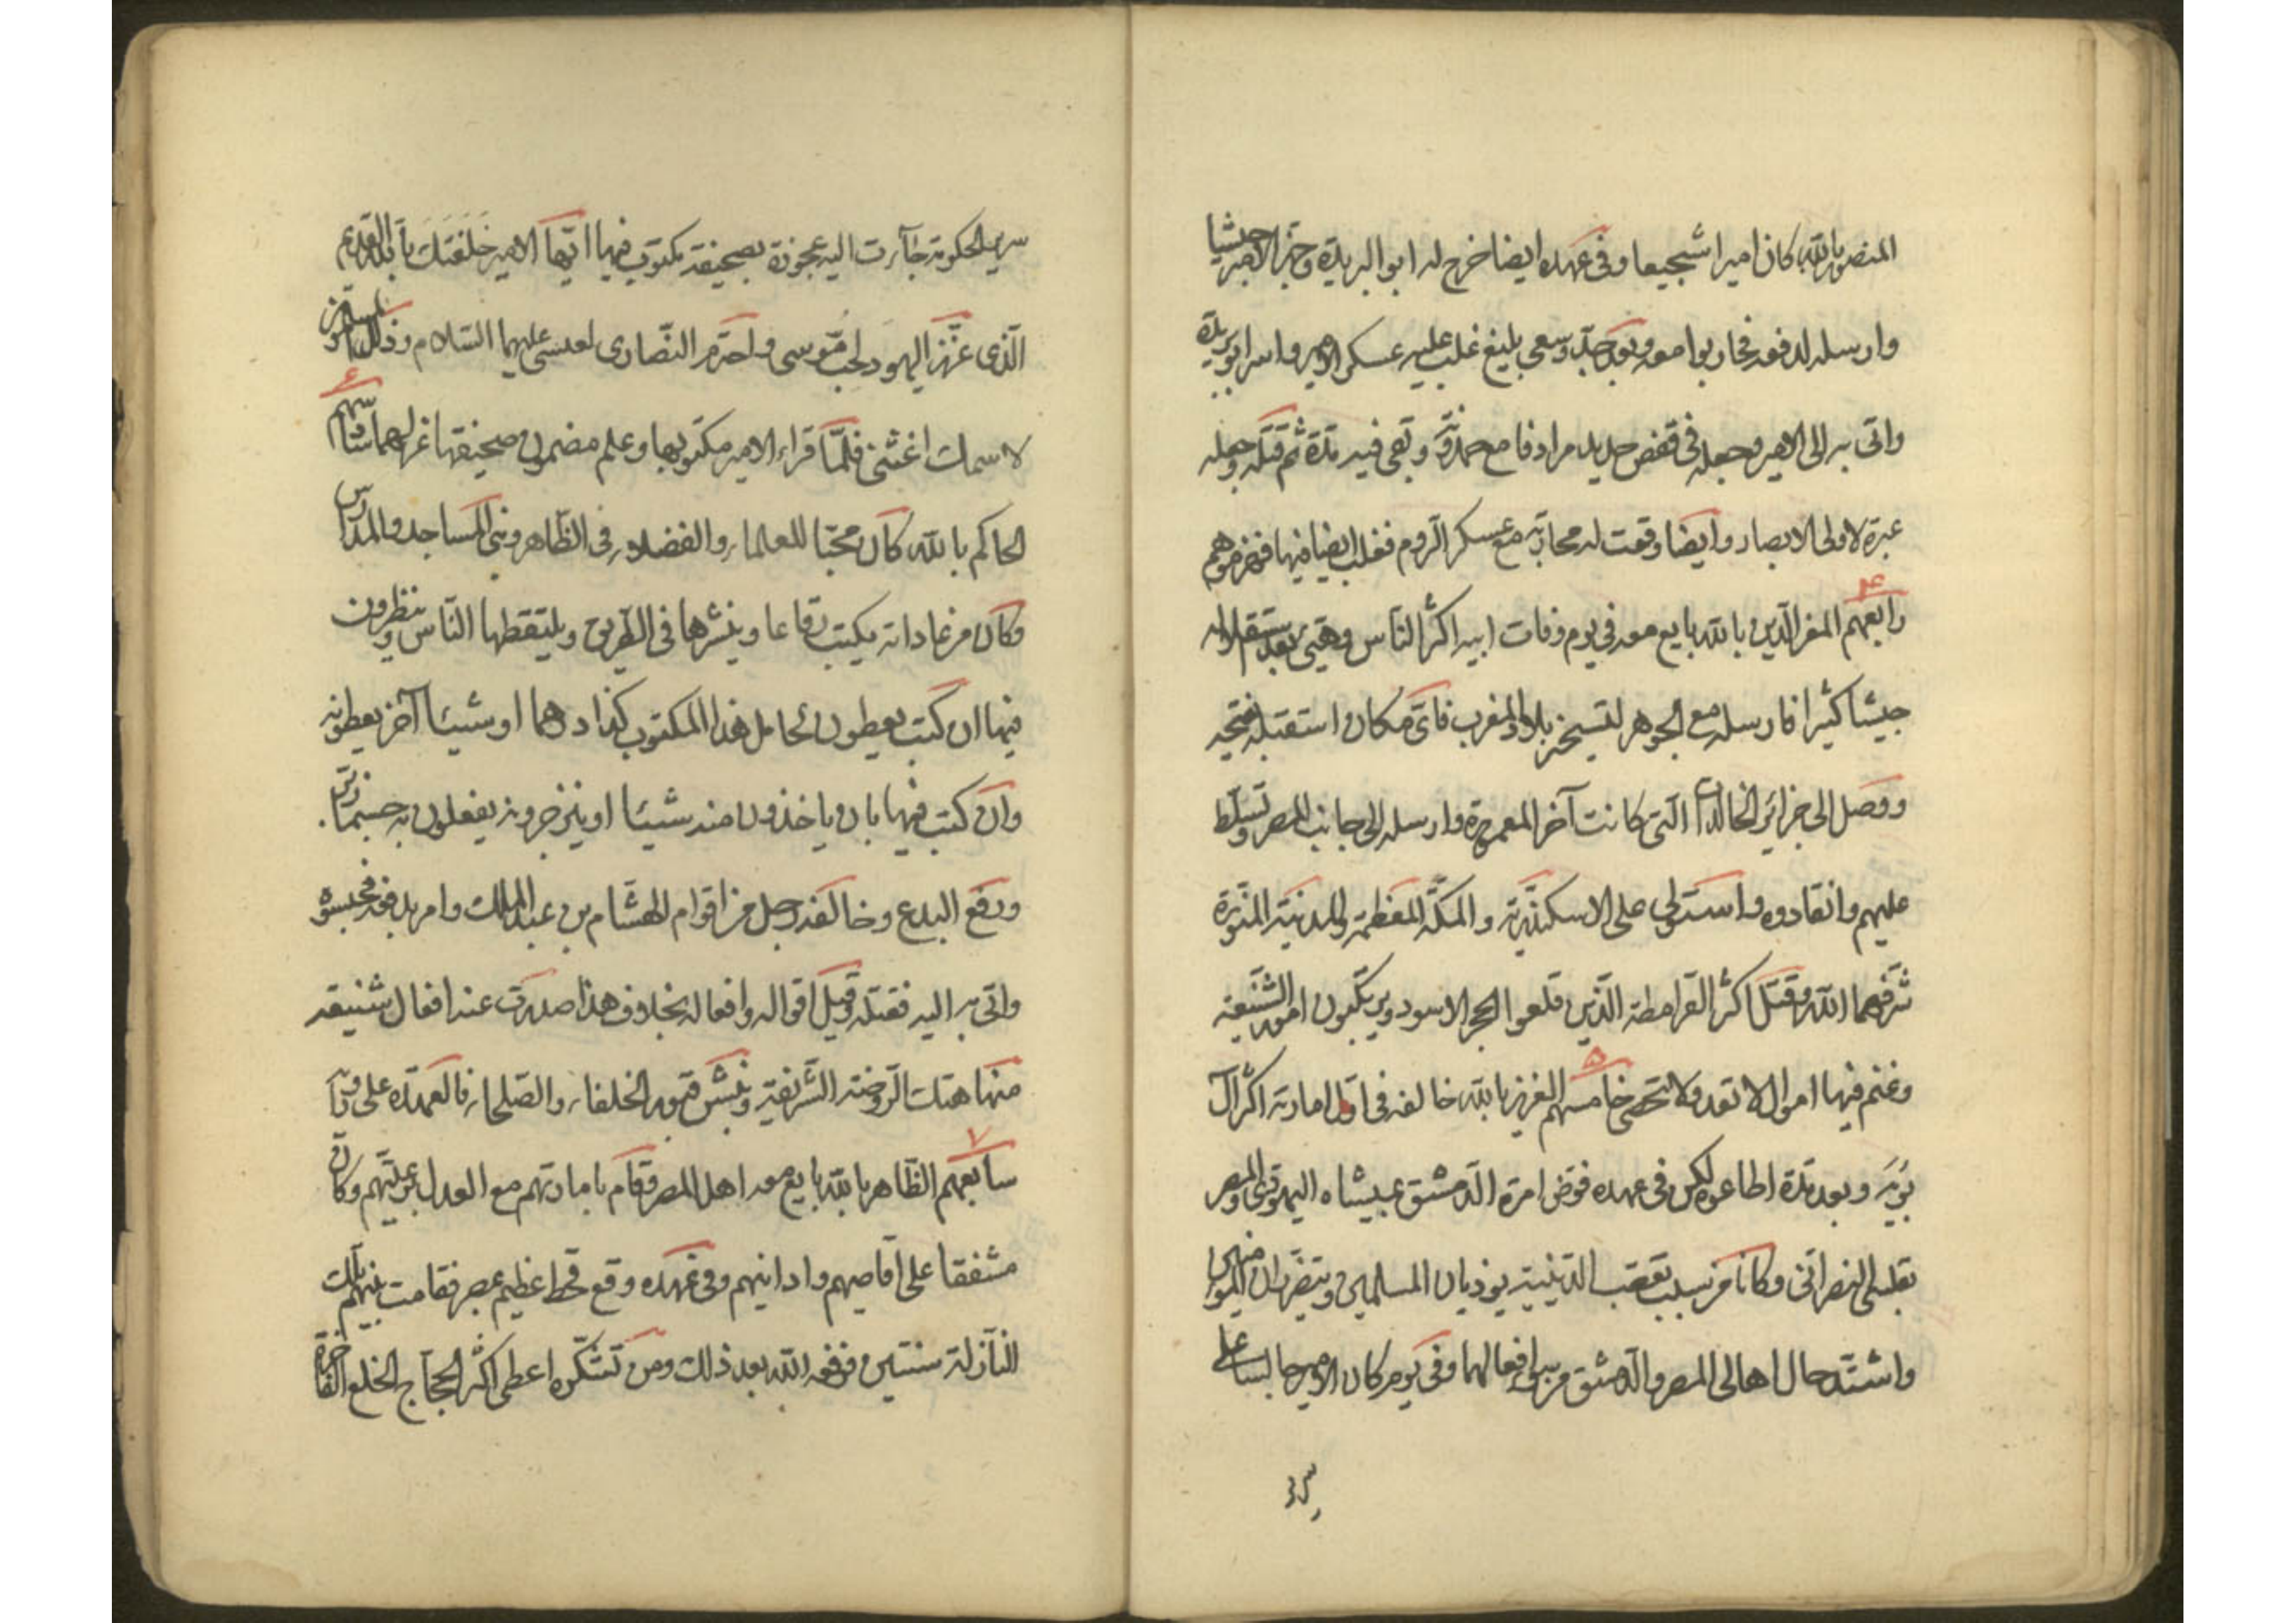 المنصور بالله كان اميرا شجيعا وفى عهده ايضا خرج له ابو البريدة وجهز الامير جيشا
وارسله لدفعه فحاربوا معه وبعد جد وسعى بليغ غلب عليه عسكر الامير واسر ابو بريدة
واتى به الى الامير وجعله فى قفص حديد مرادفا مع وبقى فيه مدة ثم قتله وجعله
عبرة لاولى الابصار وايضا وقعت له محاربة مع عسكر الروم فغلب ايضا فيها فهزموهم
۴
رابعهم المعز الدين بالله بايع معه فى يوم وفات ابيه اكثر الناس وهيئ بعد استقلاله
جيشا كثيرا فارسله مع الجوهر لتسيخر بلاد المغرب فاى مكان استقبله فتحه
ووصل الى جزائر الخالدات التى كانت آخر المعمورة وارسله الى جانب المصر وتسلط
عليهم وانقادوه واستولى على الاسكندرية والمكة المعظمة والمدينة المنورة
شرفهما الله وقتل اكثر القرامطة الذين قلعوا الحجر الاسود ويرتكبون امور الشنيعة
۵
وغنم فيها اموال لا تعد ولا تحصى خامسهم العزيز بالله خالفه فى اول امارته اكثر آل
بويه وبعد مدة اطاعوه لكن فى عهده فوض امرة الدمشق عيشاه اليهودى والمصر
النصرانى وكانا من سبب تعصب الدينية يوذيان المسلمين ويتضران
واشتد حال اهالى المصر والدمشق من سبب افعالهما وفى يوم كان الامير جالسا على
سرير
سرير الحكومة جاءت اليه عجوزة بصحيفة مكتوب فيها ايها الامير خلفتك بالله القديم
الذى عزز اليهود لحب موسى واحترم النصارى لعيسى عليهما السلام وذلل المسلمين
لاسمك اغثنى فلما قراء الامير مكتوبها وعلم مضمون صحيفتها عزلهما
۶
سادسهم
الحاكم بالله كان محبا للعلماء والفضلاء فى الظاهر وبنى المساجد والمدارس
وكان من عاداته يكتب رقاعا وينشرها فى الطريق ويلتقطها الناس وينظرون
فيها ان كتب يعطون لحامل هذا المكتوب كذا درهما او شيئا آخر يعطونه
وان كتب فيها بان ياخذون منه شيئا او ينزجرونه يفعلون به حسبما
ورفع البدع وخالفه رجل من اقوام الهشام بن عبد الملك وامر بدفعه فحبسوه
واتى به اليه فقتله وقيل اقواله وافعاله بخلاف هذا صدرت عنه افعال شنيعة
منها هتك الروضة الشريفة ونبش قبور الخلفاء والصلحاء فالعهدة على
۷
سابعهم الظاهر بالله بايع معه اهل المصر وقام بامارتهم مع العدل وكان
مشفقا على اقاصيهم وادانيهم وفى عهده وقع قحط عظيم بمصر فقامت بينهم تلك
النازلة سنتين فرفعه الله بعد ذلك ومن تشكره اعطى اكثر الحجاج الخلع الفاخرة